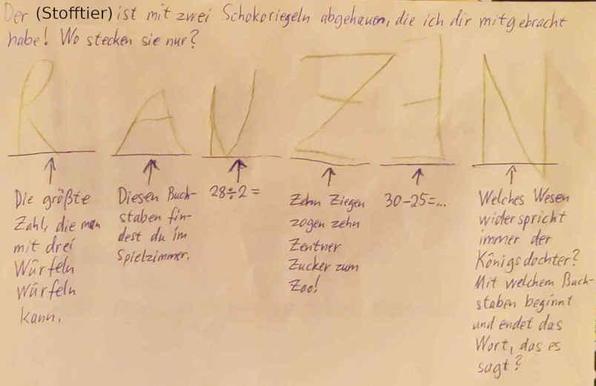 Der (Stofftier) ist mit zwei Schokoriegeln abgehauen, die ich dir mitgebracht
habe! Wo stecken sie nur?
R A U Z E N
Die größte
Zahl, die man
mit drei
Würfeln
würfeln
kann.
Diesen Buch-
staben fin-
dest du im
Spielzimmer.
28÷2=
Zehn Ziegen
zogen zehn
Zentner
Zucker zum
Zoo!
30-25=...
Welches Wesen
widerspricht
immer der
Königsdochter?
Mit welchem Buch-
staben beginnt
und endet das
Wort, das es
sagt?